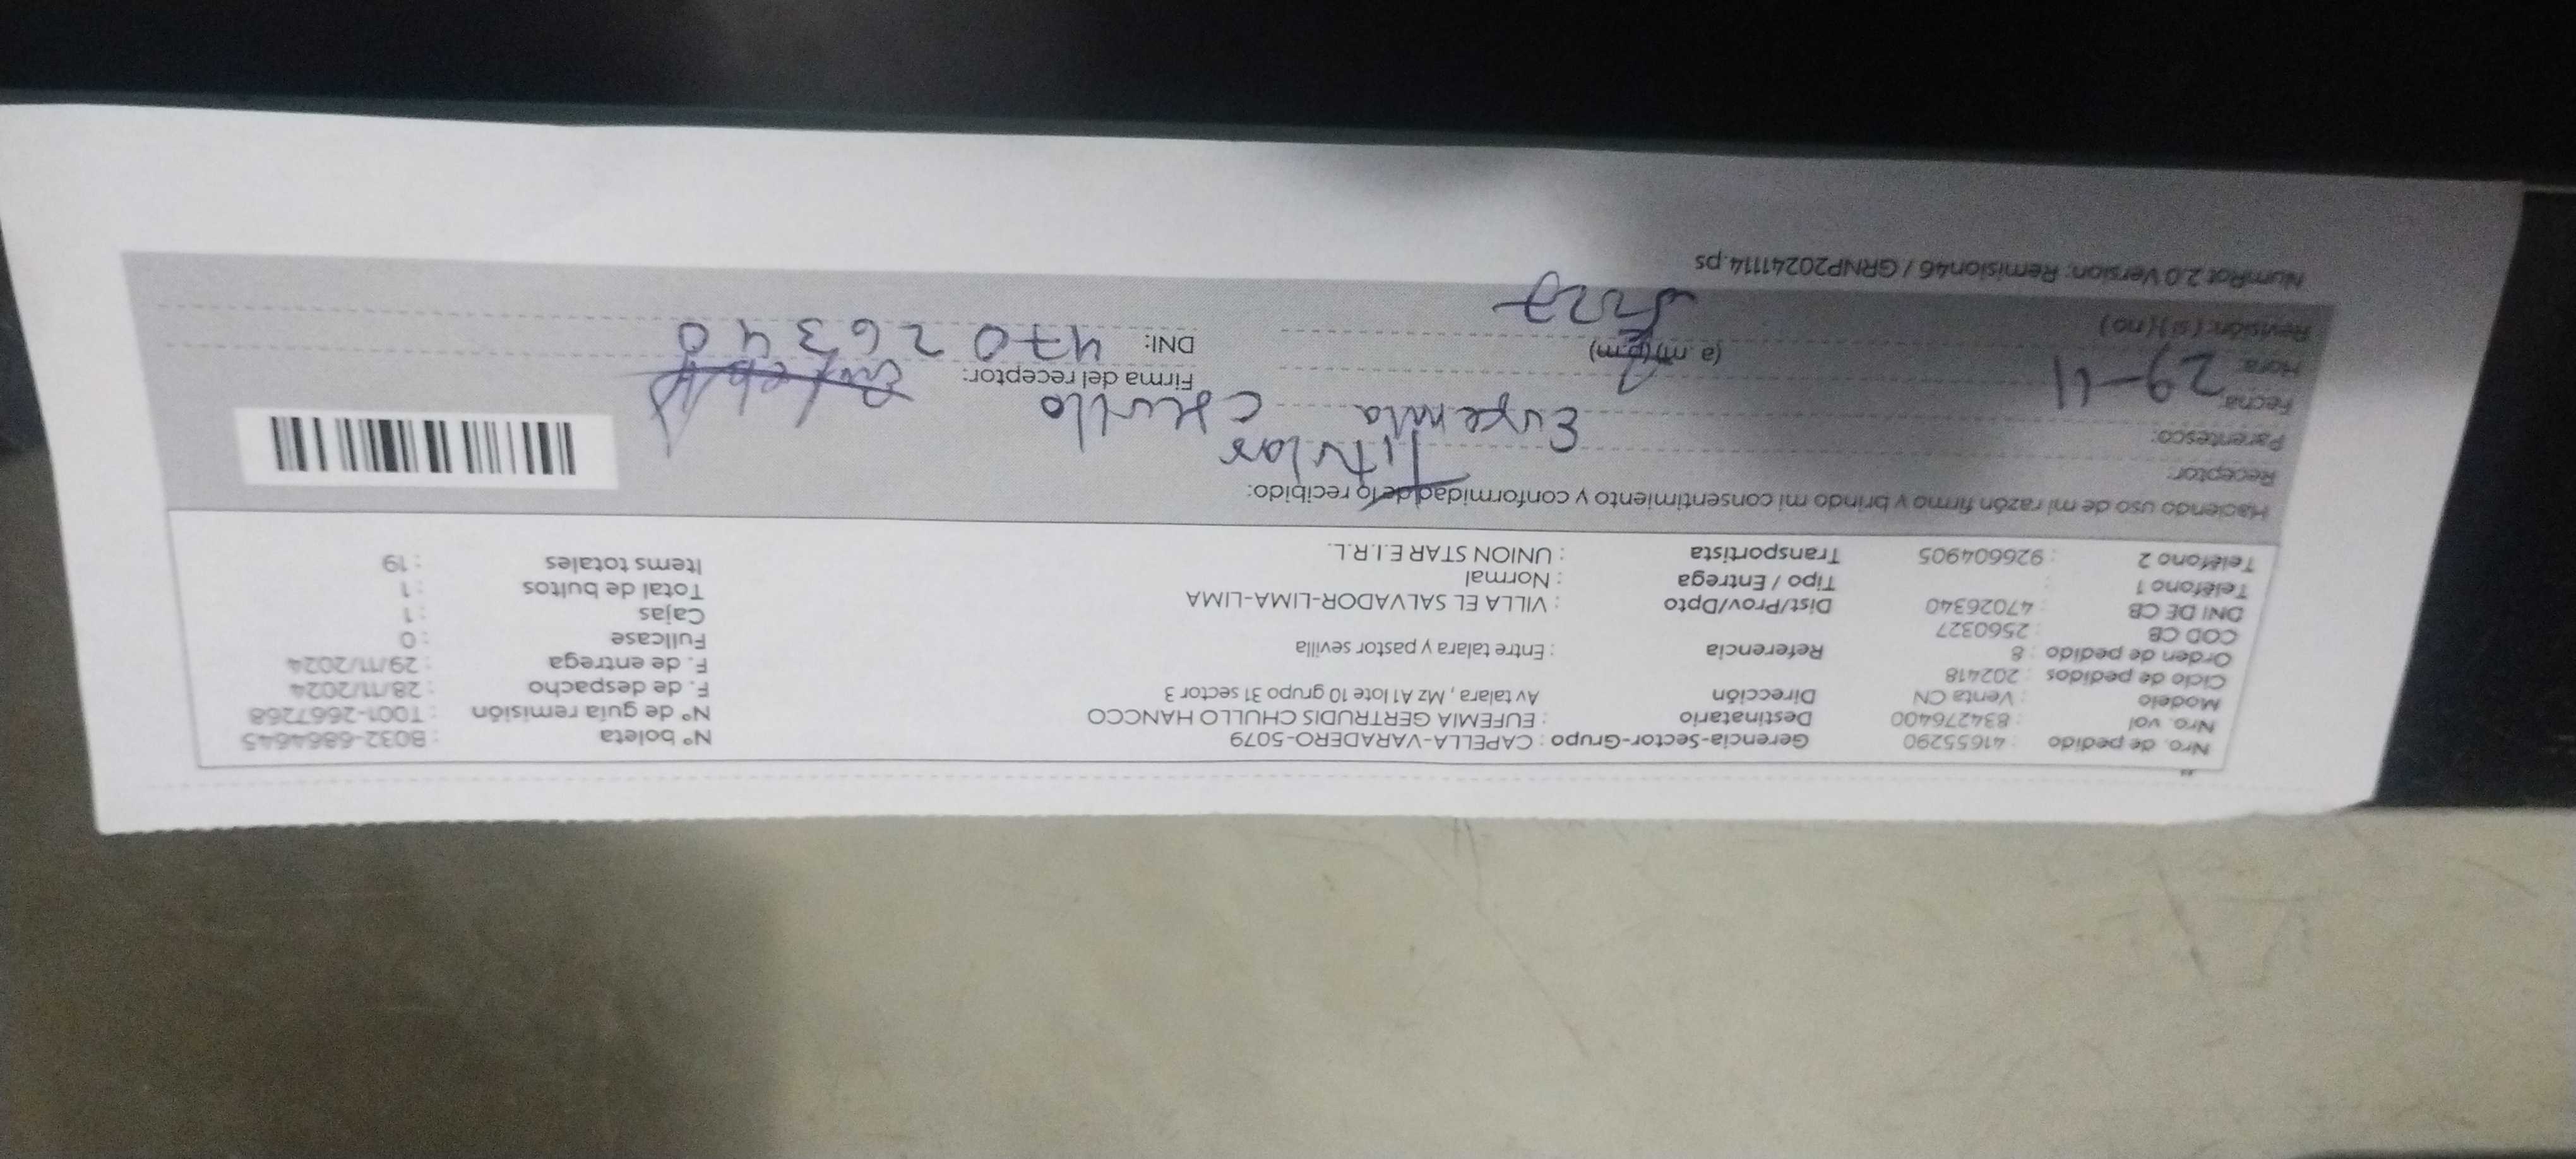 Nro. de pedido : 41655290 Gerencia-Sector-Grupo : CAPELLA-VARADERO-5079 Nº boleta : B032-6864645
Nro. vol : 834276400 Destinatario : EUFEMIA GERTRUDIS CHULLO HANCCO Nº de guía remisión : T001-2667268
Modelo : Venta CN Dirección Av talara , Mz A1 lote 10 grupo 31 sector 3 F. de despacho : 28/11/2024
Ciclo de pedidos : 202418 F. de entrega : 29/11/2024
Orden de pedido : 8 Referencia : Entre talara y pastor sevilla Fullcase : 0
COD CB : 2560327 Cajas : 1
DNI DE CB : 47026340 Dist/Prov/Dpto : VILLA EL SALVADOR-LIMA-LIMA Total de bultos : 1
Teléfono 1 : Tipo / Entrega : Normal Items totales : 19
Teléfono 2 : 926604905 Transportista : UNION STAR E.I.R.L.
Haciendo uso de mi razón firmo y brindo mi consentimiento y conformidad de lo recibido:
Receptor: Titular
Parentesco: Eufemia Chullo
Fecha: 29-11 Firma del receptor:
Hora: (a.m) (p.m) DNI: 47026340
Revisión: ( si ) ( no )
NumRot 2.0 Version: Remision46 / GRNP20241114.ps